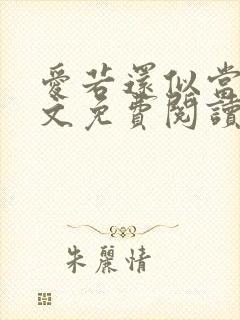 愛若還似當
文免費閱讀
朱麗情